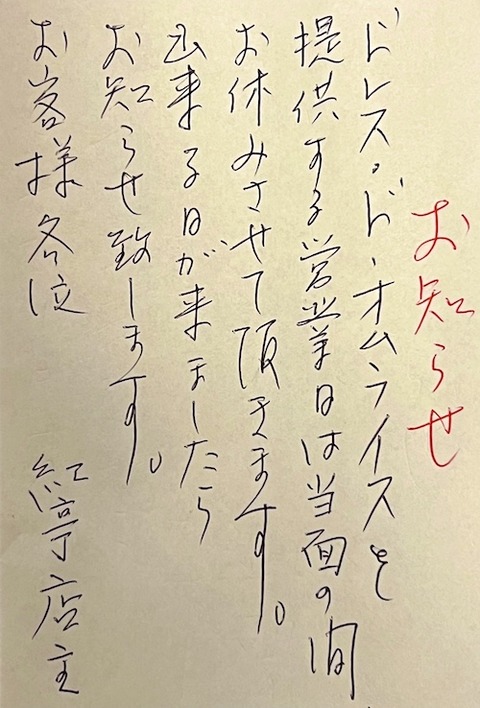 お知らせ
ドレス・ド・オムライスを
提供する営業日は当面の間
お休みさせて頂きます。
出来る日が来ましたら
お知らせ致します。
お客様各位
紅亭店主